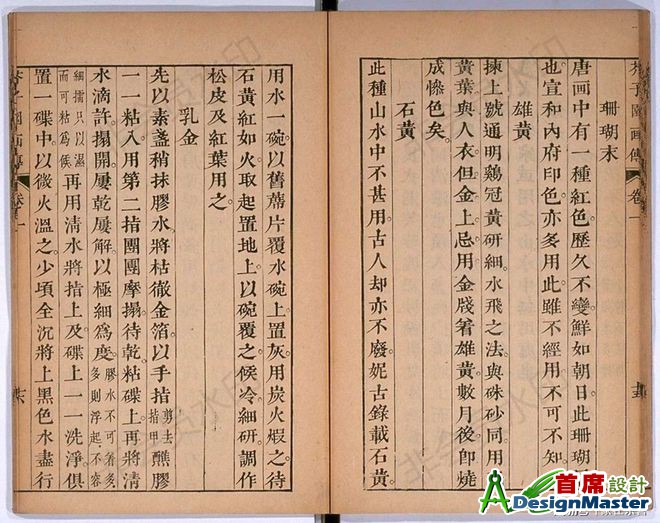 珊瑚末
唐画中有一種紅色歷久不變鮮如朝日此珊瑚
也宣和內府印色亦多用此雖不經用不可不知
雄黃
揀上號通明鷄冠黃研細水飛之法與硃砂同用
黃葉與人衣但金上忌用金牋着雄黃數月後卽燒
成慘色矣
石黃
此種山水中不甚用古人却亦不廢妮古錄載石黃
用水一碗以舊蓆片覆水碗上置灰用炭火煆之待
石黃紅如火取起置地上以碗覆之候冷細研調作
松皮及紅葉用之
乳金
先以素盞稍抹膠水將枯徹金箔以手指剪去指甲醮膠
一一粘入用第二指團團摩搨待乾粘碟上再將清
水滴許搨開屢乾屢解以極細爲度膠水不可著多多則浮起不容
細擂只以濕而可粘爲候再用清水將指上及碟上一一洗淨俱
置一碟中以微火溫之少頃全沉將上黑色水盡行
芥子園画傳
卷一
首席設計
DesignMaster